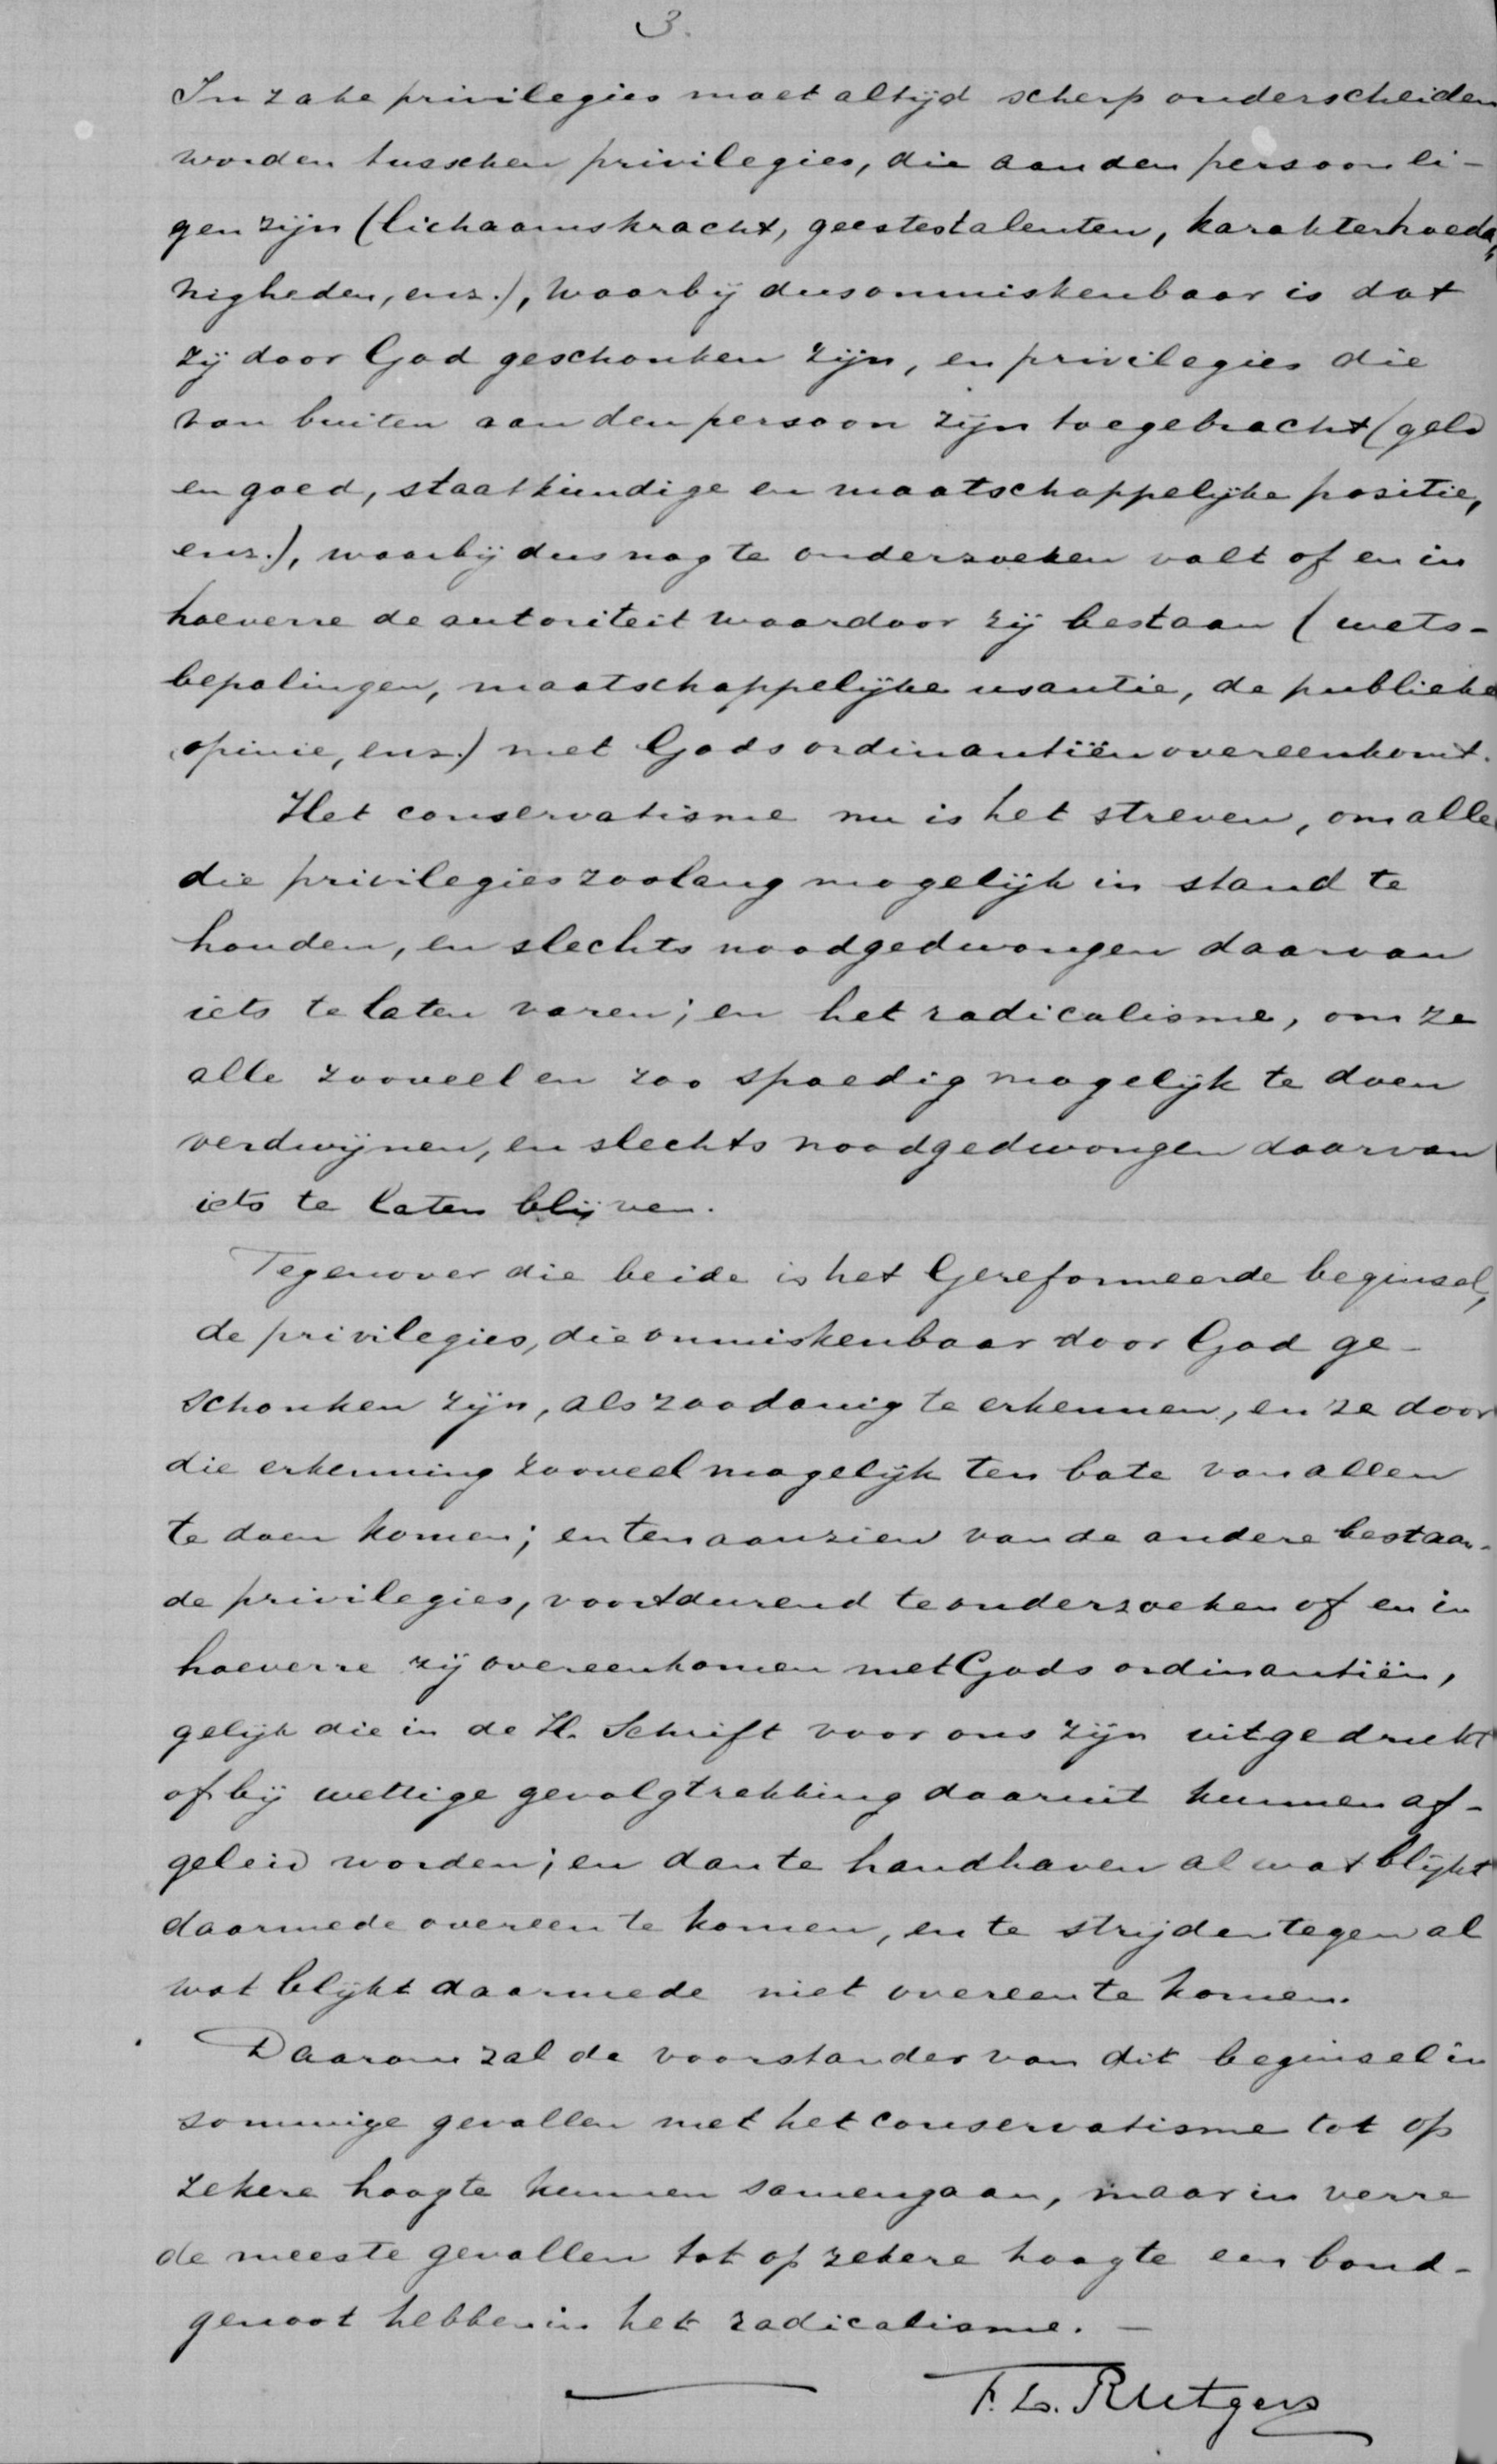 3.
In zake privilegies moet altijd scherp onderscheiden
worden tusschen privilegies, die aan den persoon li-
gen zijn (lichaamskracht, geestestalenten, karakterhoeda-
nigheden, enz.), waarbij dus onmiskenbaar is dat
zij door God geschonken zijn, en privilegies die
van buiten aan den persoon zijn toegebracht (geld
en goed, staatkundige en maatschappelijke positie,
enz.), waarbij dus nog te onderzoeken valt of en in
hoeverre de autoriteit waardoor zij bestaan (wets-
bepalingen, maatschappelijke usantie, de publieke
opinie, enz.) met Gods ordinantiën overeenkomt.
Het conservatisme nu is het streven, om alle
die privilegies zoolang mogelijk in stand te
houden, en slechts noodgedwongen daarvan
iets te laten varen; en het radicalisme, om ze
alle zooveel en zoo spoedig mogelijk te doen
verdwijnen, en slechts noodgedwongen daarvan
iets te laten blijven.
Tegenover die beide is het Gereformeerde beginsel,
de privilegies, die onmiskenbaar door God ge-
schonken zijn, als zoodanig te erkennen, en ze door
die erkenning zooveel mogelijk ten bate van allen
te doen komen; en ten aanzien van de andere bestaan-
de privilegies, voortdurend te onderzoeken of en in
hoeverre zij overeenkomen met Gods ordinantiën,
gelijk die in de H. Schrift voor ons zijn uitgedrukt
of bij wettige gevolgtrekking daaruit kunnen af-
geleid worden; en dan te handhaven al wat blijkt
daarmede overeen te komen, en te strijden tegen al
wat blijkt daarmede niet overeen te komen.
Daarom zal de voorstander van dit beginsel in
sommige gevallen met het conservatisme tot op
zekere hoogte kunnen samengaan, maar in verre
de meeste gevallen tot op zekere hoogte een bond-
genoot hebben in het radicalisme. —
F. L. Rutgers